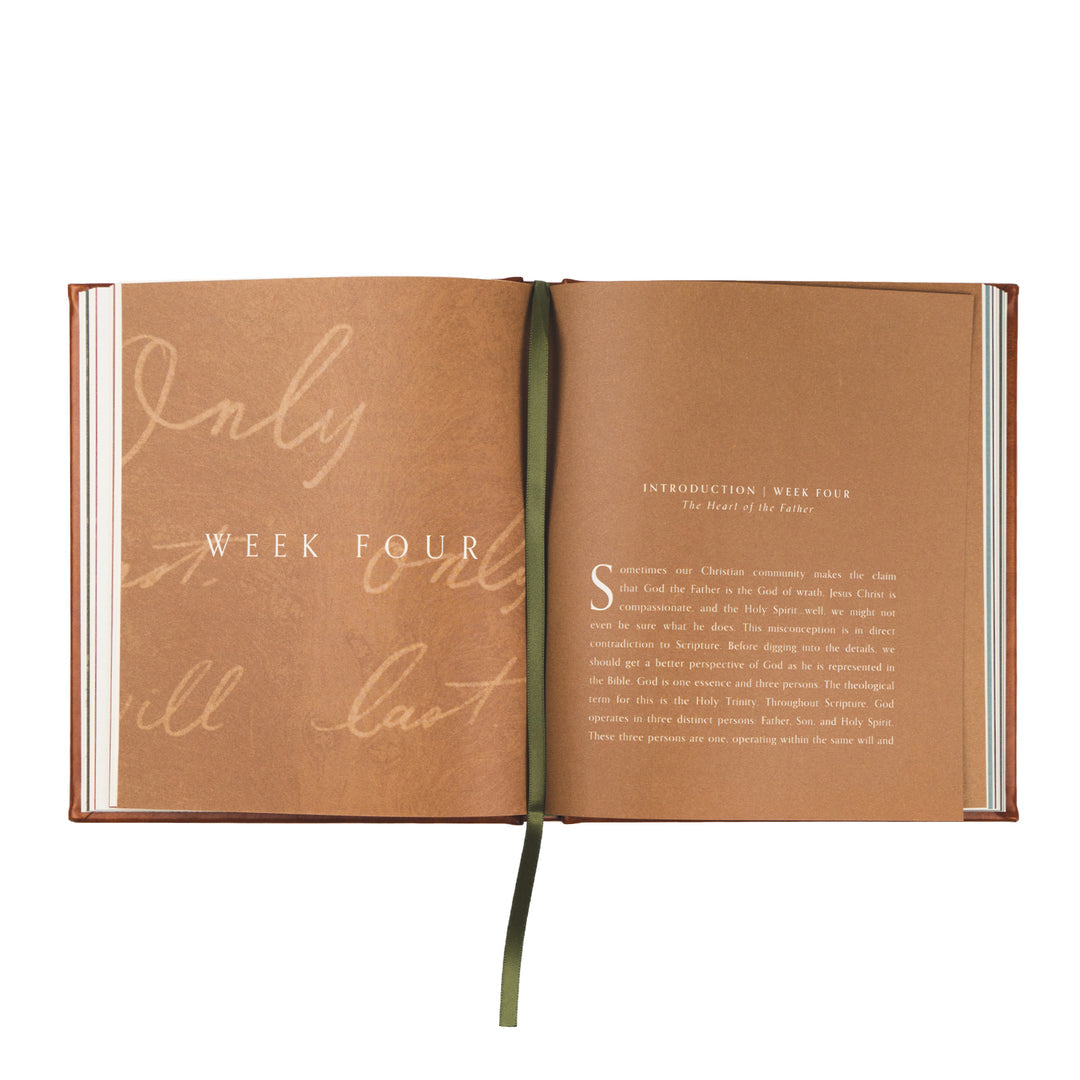 Only
WEEK FOUR
only
will last.
INTRODUCTION | WEEK FOUR
The Heart of the Father
Sometimes our Christian community makes the claim
that God the Father is the God of wrath, Jesus Christ is
compassionate, and the Holy Spirit...well, we might not
even be sure what he does. This misconception is in direct
contradiction to Scripture. Before digging into the details, we
should get a better perspective of God as he is represented in
the Bible. God is one essence and three persons. The theological
term for this is the Holy Trinity. Throughout Scripture, God
operates in three distinct persons: Father, Son, and Holy Spirit.
These three persons are one, operating within the same will and